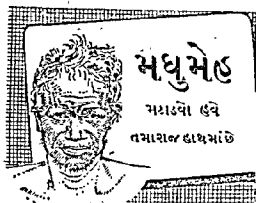 મધુમેહ
મટાડવો હવે
તમારાજ હાથમાં છે